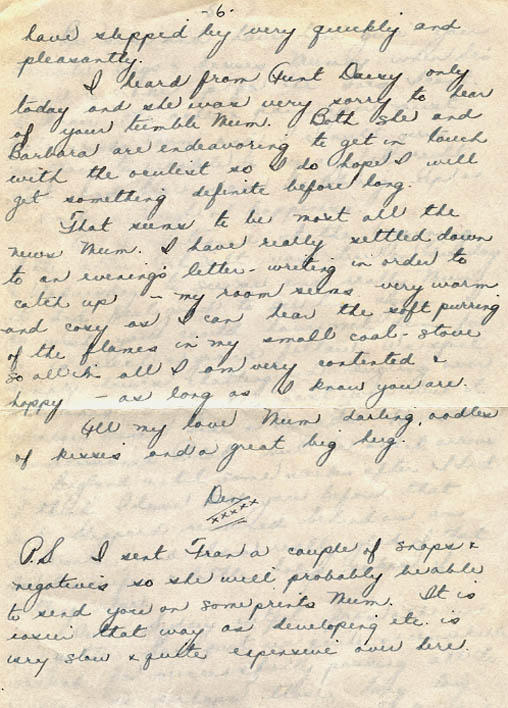 -6-
have slipped by very quickly and
pleasantly.
I heard from Aunt Daisy only
today and she was very sorry to hear
of your tumble Mum. Both she and
Barbara are endeavoring to get in touch
with the oculist so I do hope I will
get something definite before long.
That seems to be most all the
news Mum. I have really settled down
to an evening's letter-writing in order to
catch up - my room seems very warm
and cosy as I can hear the soft purring
of the flames in my small coal-stove
so all in all I am very contented &
happy - as long as I know you are.
All my love Mum darling, oodles
of kisses and a great big hug.
Den
xxxxx
P.S I sent Fran a couple of snaps &
negatives so she will probably be able
to send you on some prints Mum. It is
easier that way as developing etc. is
very slow & quite expensive over here.